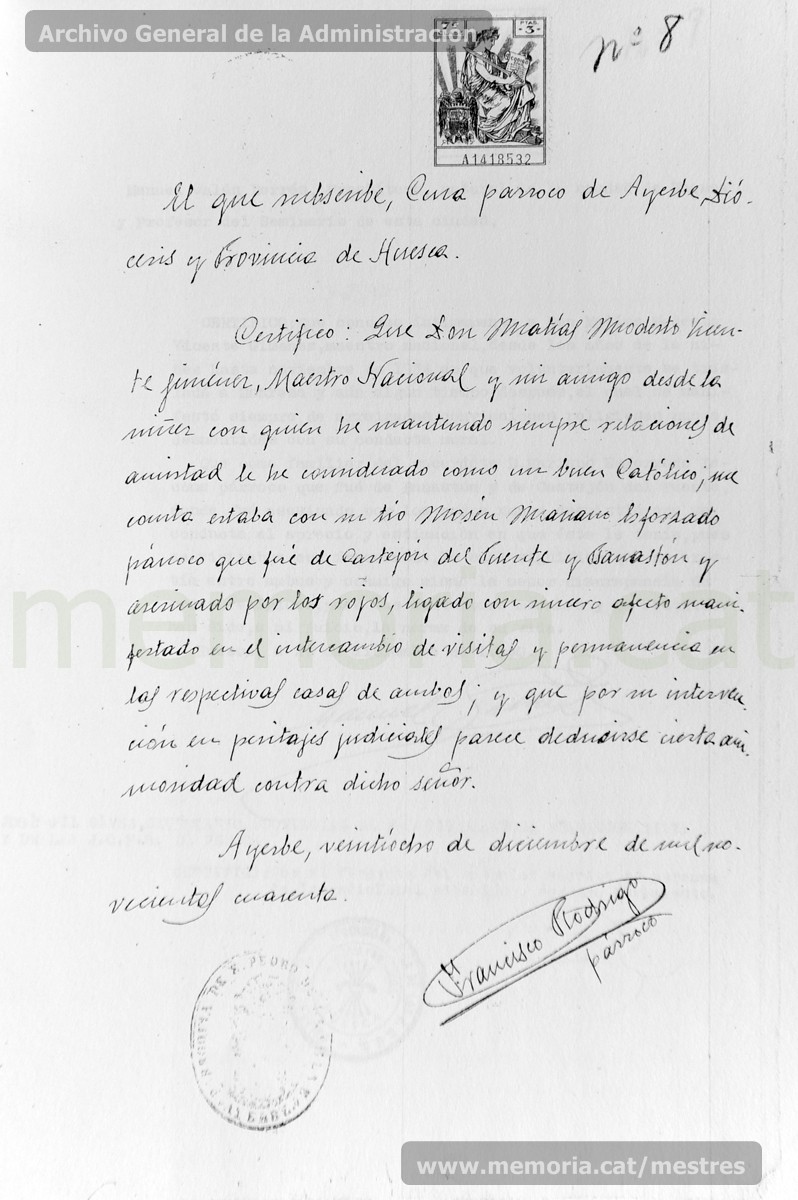 Archivo General de la Administración
7ª
PTAS.
-3-
A1418532
nº 8
El que subscribe, Cura párroco de Ayerbe, Dió-
cesis y Provincia de Huesca.
Certifico: Que Don Matías Modesto Vicen-
te Jiménez, Maestro Nacional y mi amigo desde la
niñez con quien he mantenido siempre relaciones de
amistad le he considerado como un buen Católico; me
consta estaba con su tío Mosén Mariano Esforzado
párroco que fué de Castejón del Puente y Banastón y
asesinado por los rojos, ligado con sincero afecto mani-
festado en el intercambio de visitas y permanencia en
las respectivas casas de ambos; y que por su interven-
ción en peritajes judiciales parece deducirse cierta ani-
mosidad contra dicho señor.
Ayerbe, veintiocho de diciembre de mil no-
vecientos cuarenta.
Francisco Rodrigo
párroco
DE S. PEDRO
memoria.cat
www.memoria.cat/mestres